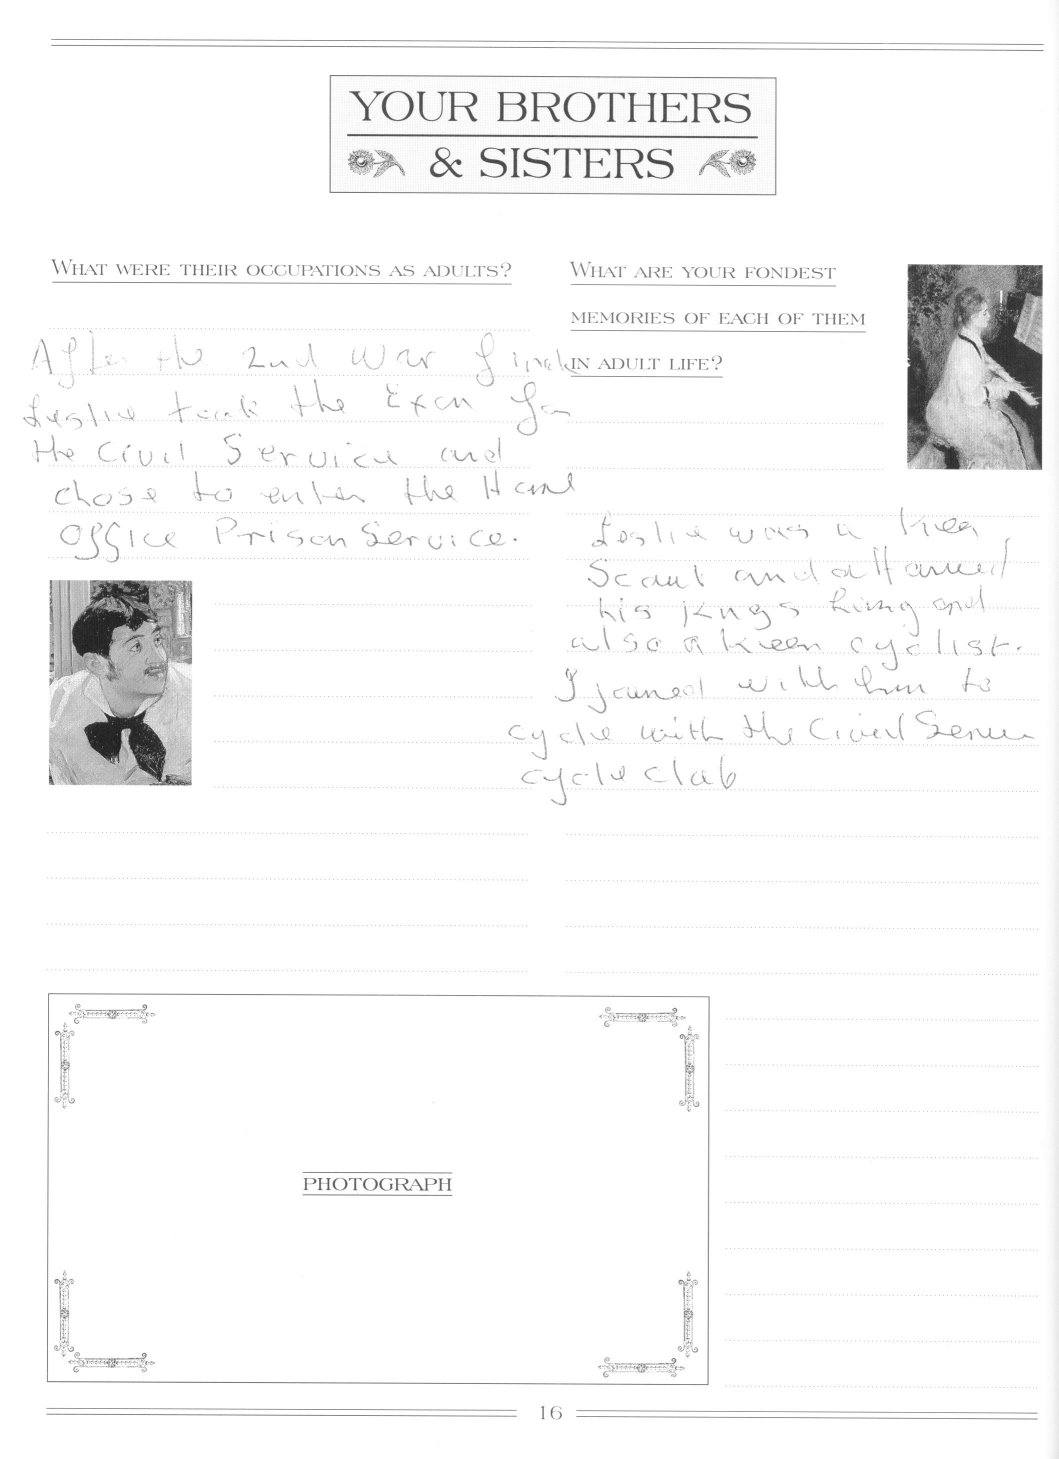 YOUR BROTHERS
& SISTERS
WHAT WERE THEIR OCCUPATIONS AS ADULTS?
After the 2nd War
Leslie took the Exam for
the Civil Service and
chose to enter the Home
Office Prison Service.
WHAT ARE YOUR FONDEST
MEMORIES OF EACH OF THEM
IN ADULT LIFE?
Leslie was a keen
Scout and attained
his kings and
also a keen cyclist.
I joined with him to
cycle with the Civil Service
cycle club
PHOTOGRAPH
16